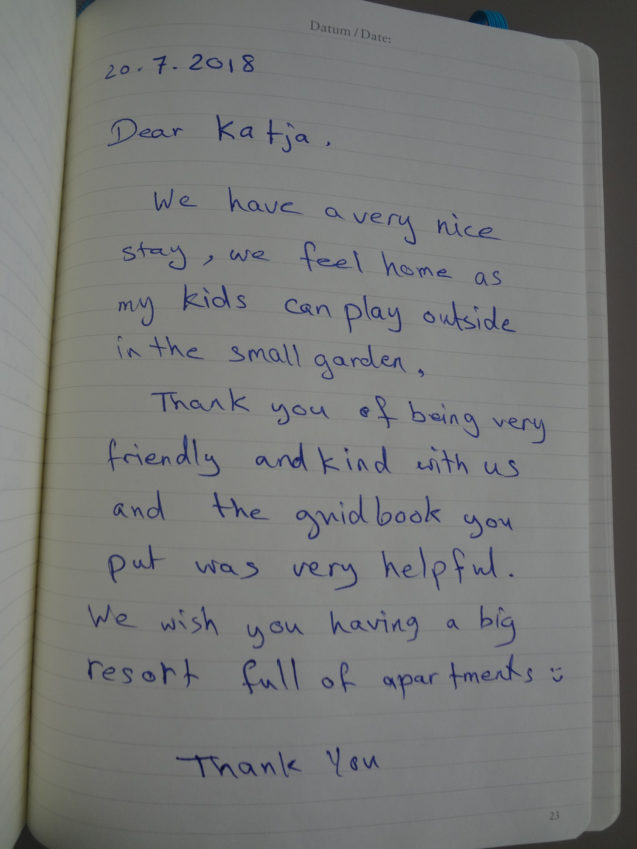 Datum / Date:
20.7.2018
Dear Katja,
We have a very nice
stay, we feel home as
my kids can play outside
in the small garden,
Thank you of being very
friendly and kind with us
and the guidbook you
put was very helpful.
We wish you having a big
resort full of apartments :)
Thank You
23